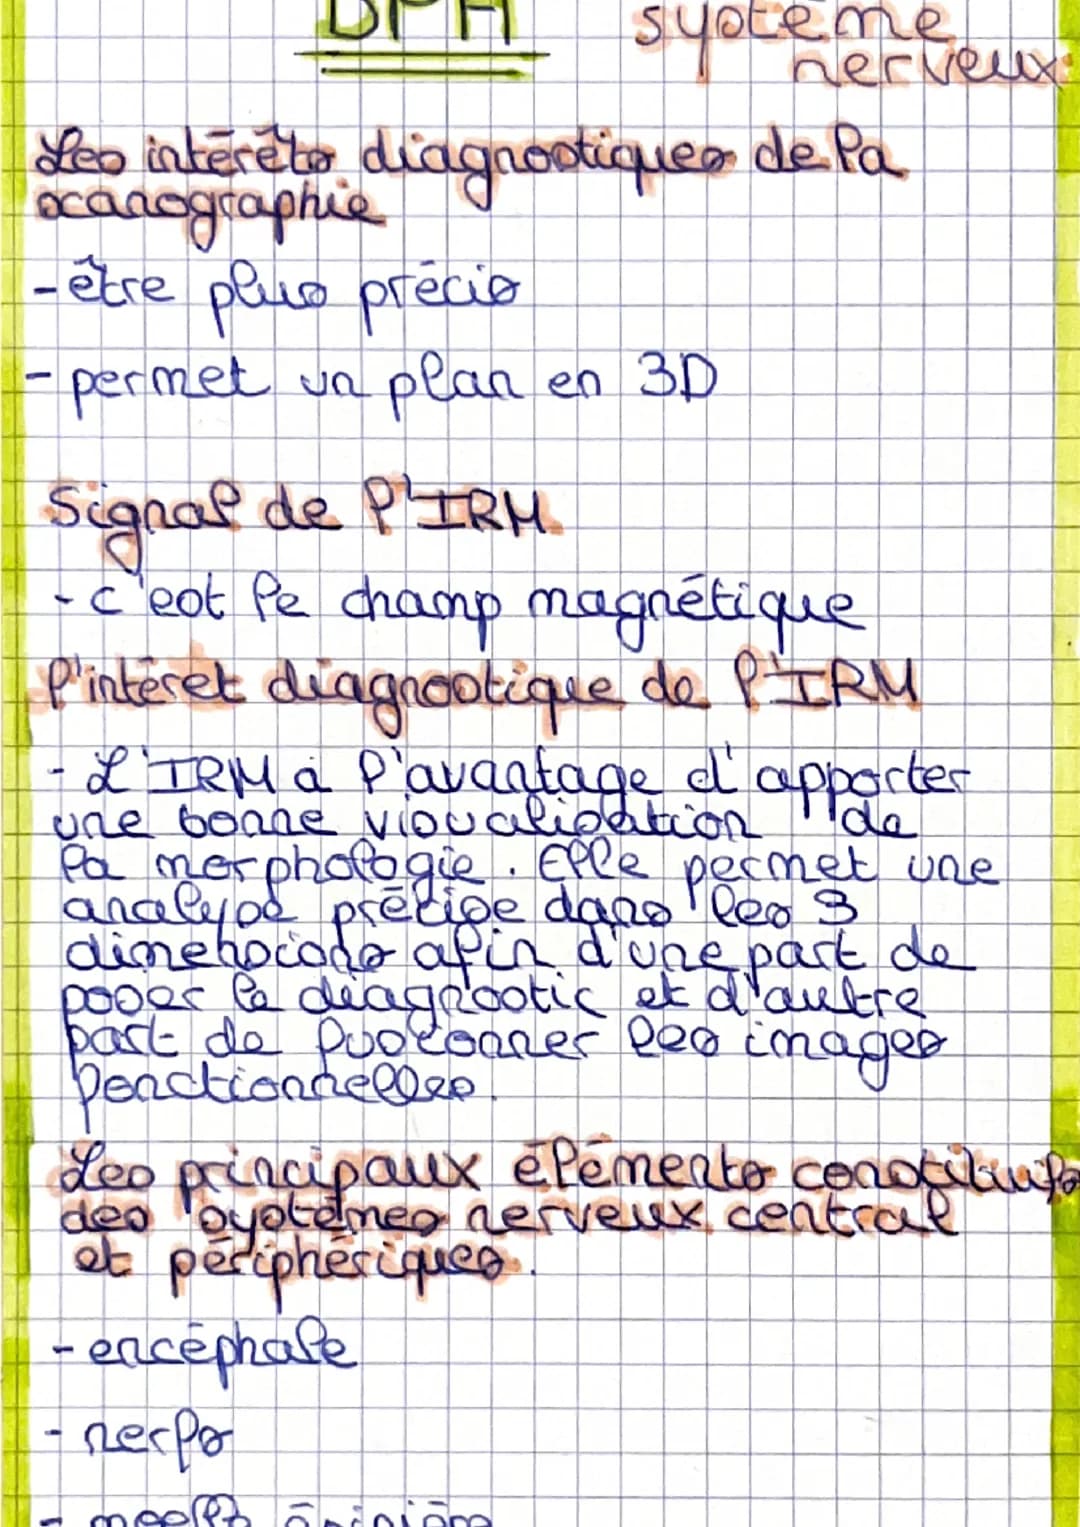 BPH système
nerveux
Les intérêts diagnostiques de la
scanographie
- être plus précis
- permet un plan en 3D
Signal de l'IRM
- c'est le champ magnétique
l'intéret diagnostique de l'IRM
- L'IRM à l'avantage d'apporter
une bonne visualisation de
la morphologie. Elle permet une
analyse précise dans les 3
dimensions afin d'une part de
poser le diagnostic et d'autre
part de fusionner les images
fonctionnelles.
Les principaux éléments constitutifs
des systèmes nerveux central
et périphériques.
- encéphale
- nerfs